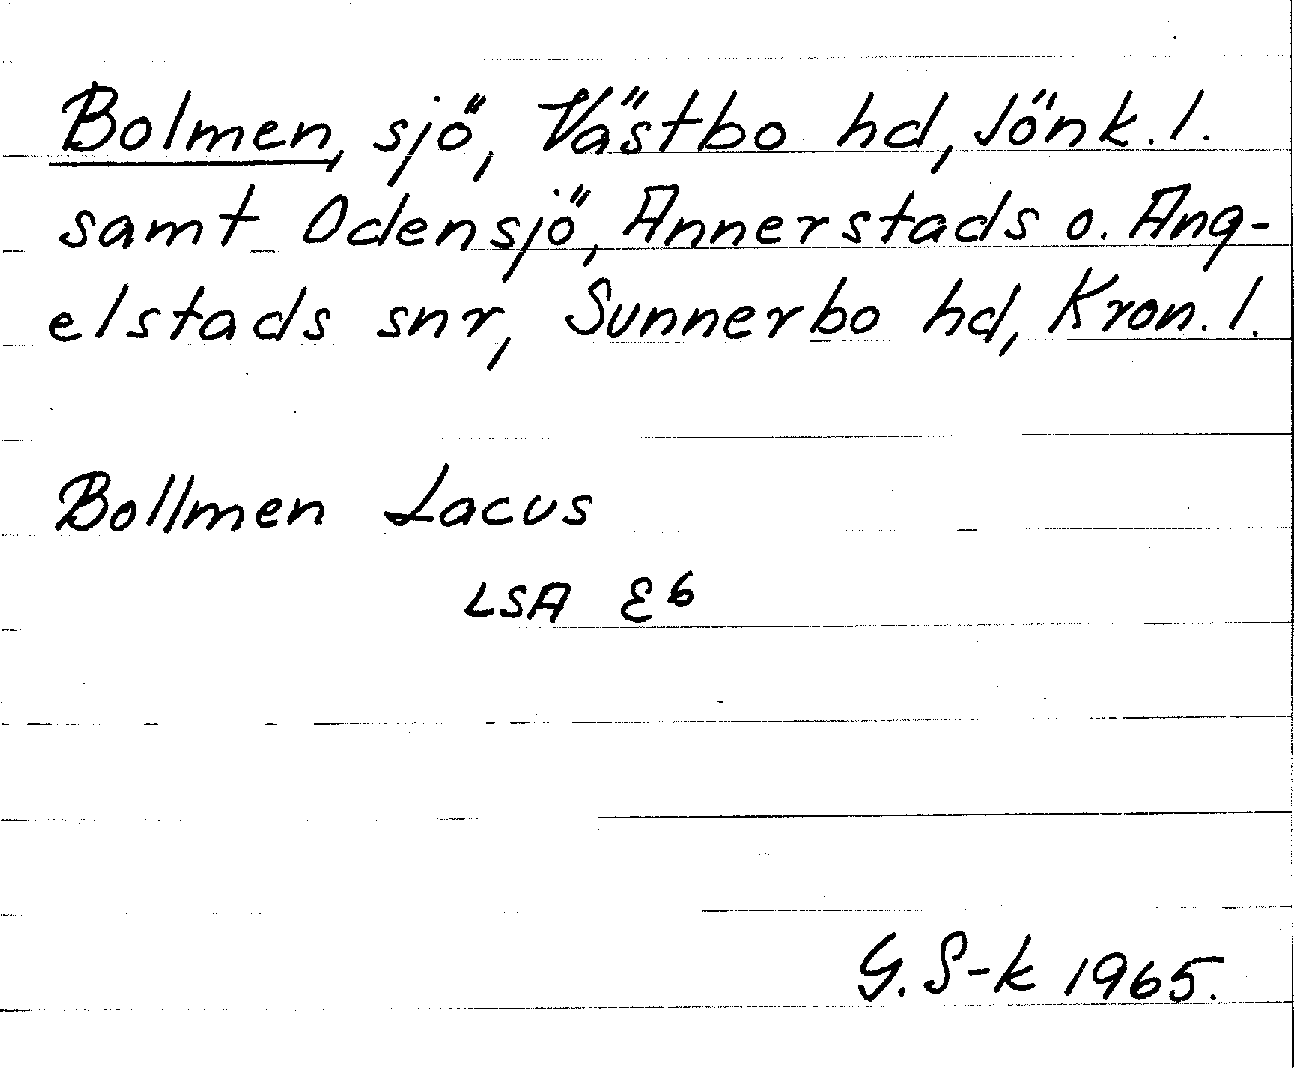 Bolmen, sjö, Västbo hd, Jönk. l.
samt Odensjö, Annerstads o. Ang-
elstads snr, Sunnerbo hd, Kron. l.
Bollmen Lacus
LSA E6
G. S-k 1965.